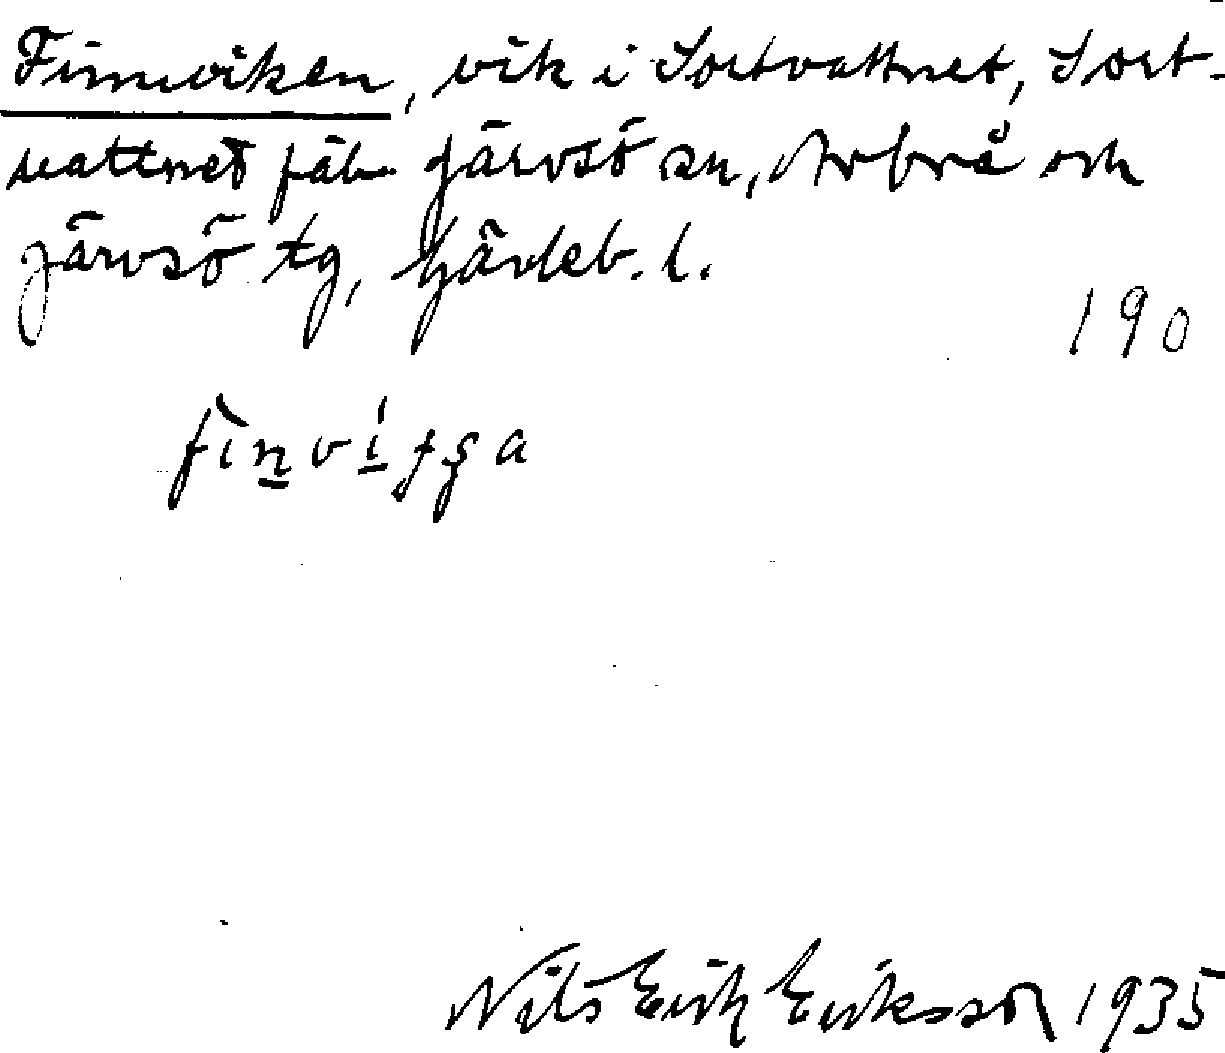 Finnviken, vik i Sortvattnet, Sort-
vattnet fäb. Järvsö sn, Arbrå och
Järvsö tg, Gävleb. l.
190
Nils Erik Eriksson 1935